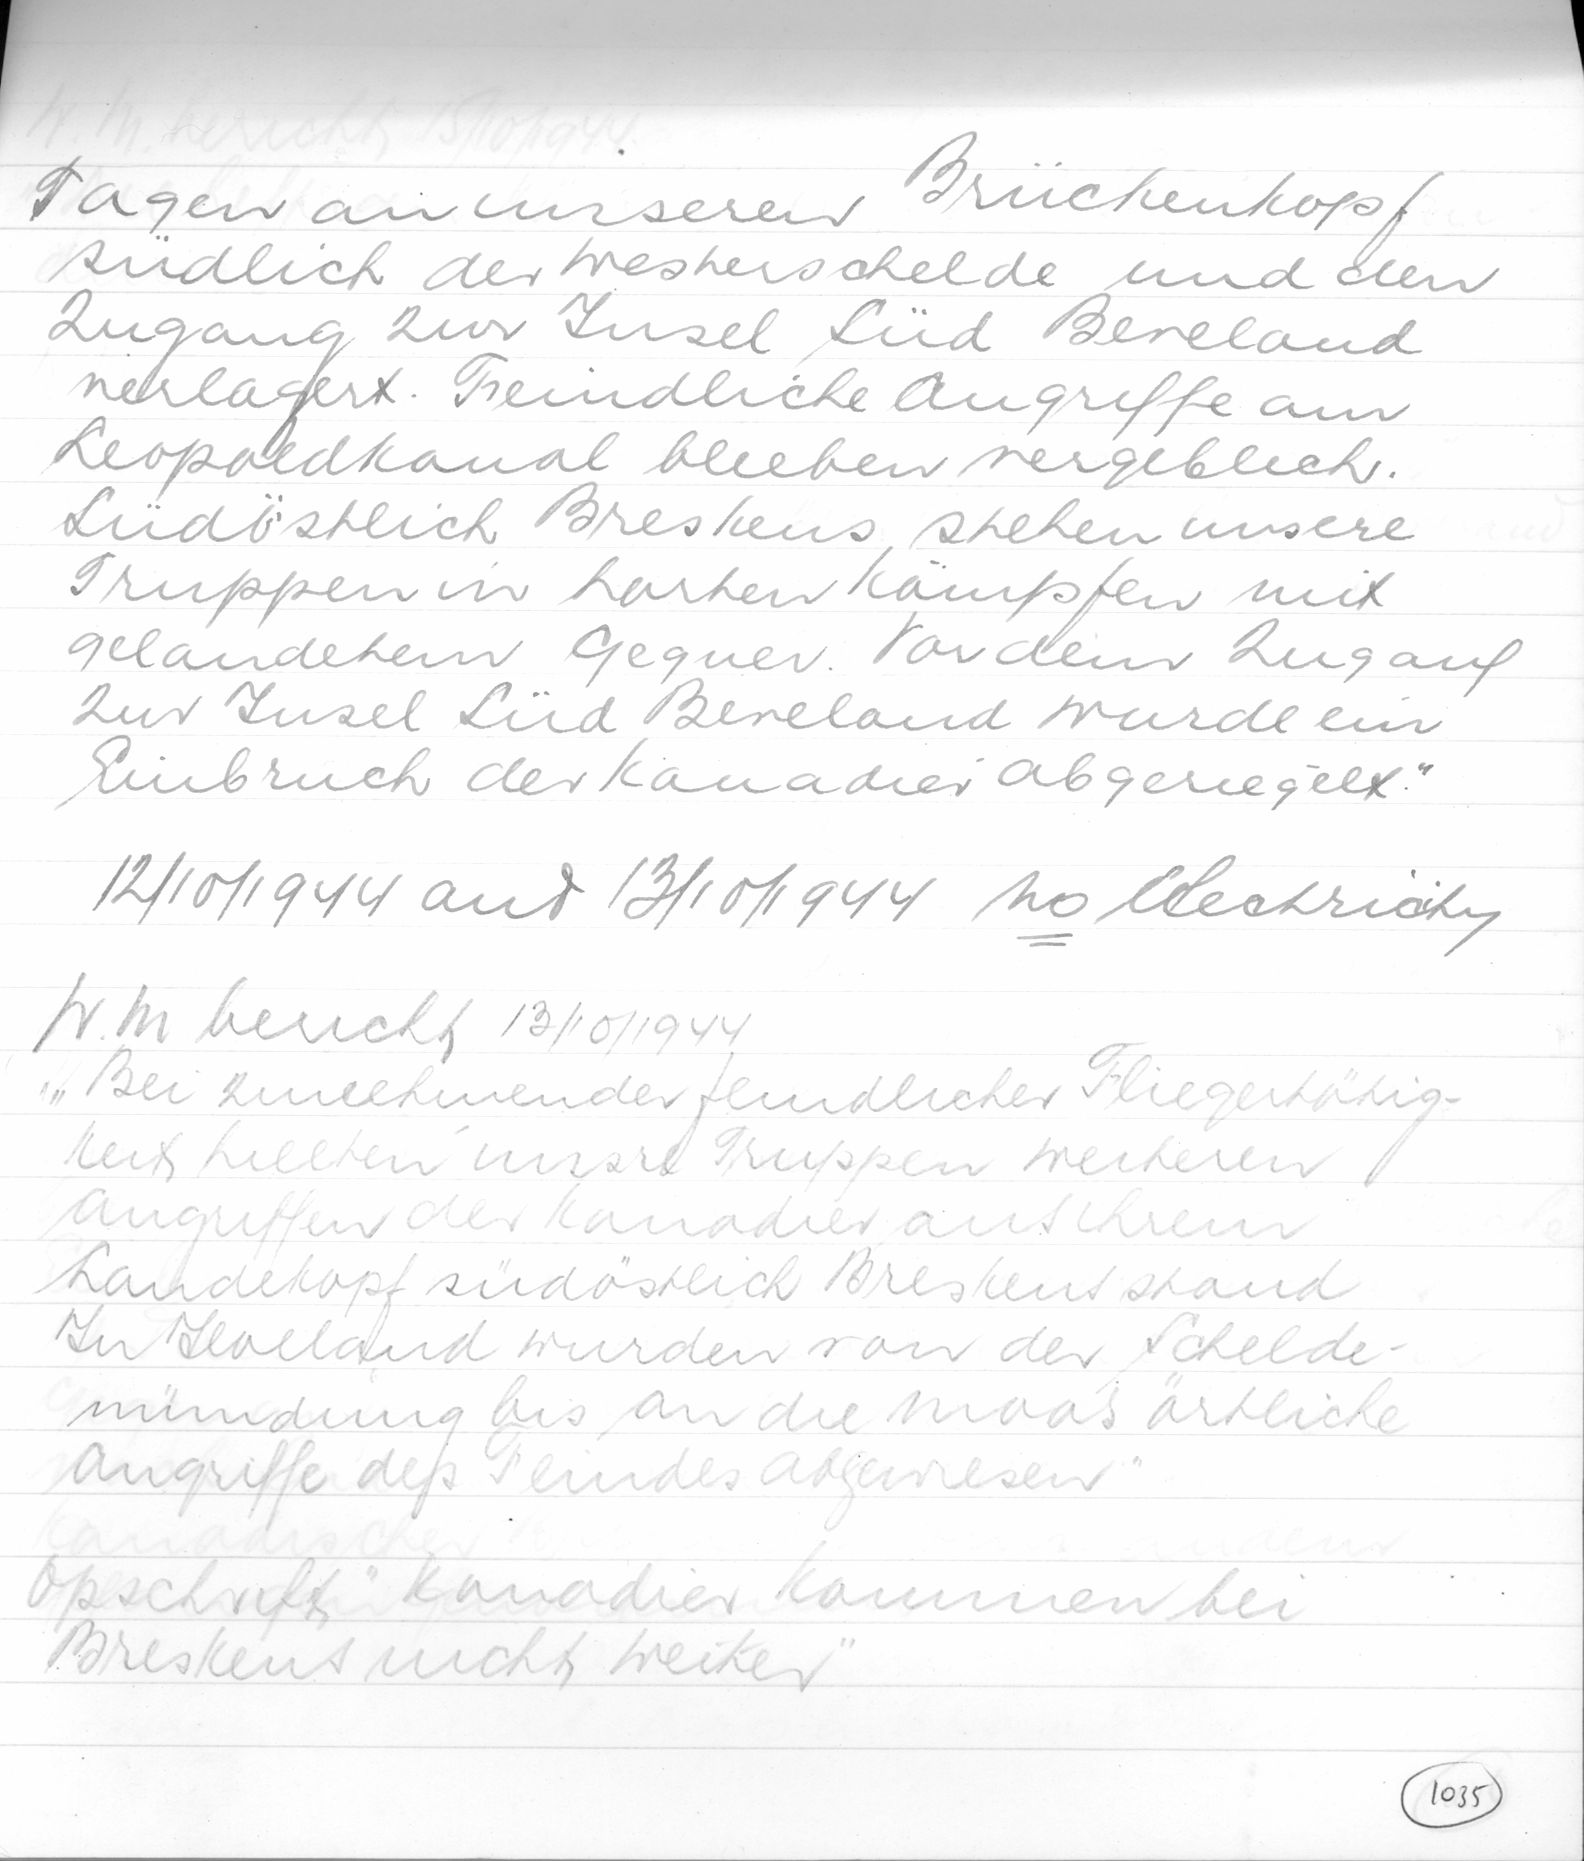 Tagen an unseren Brückenkopf
südlich der Westerschelde und den
Zugang zur Insel Süd Beveland
verlagert. Feindliche Angriffe am
Leopoldkanal blieben vergeblich.
Südöstlich Breskens stehen unsere
Truppen in harten Kämpfen mit
gelandetem Gegner. Vor dem Zugang
zur Insel Süd Beveland wurde ein
Einbruch der Kanadier abgeriegelt."
12/10/1944 and 13/10/1944 no Electricity
W.M bericht 13/10/1944
„Bei zunehmender feindlicher Fliegertätig-
keit hielten unsre Truppen weiteren
Angriffen der Kanadier aus ihrem
Landekopf südöstlich Breskens stand
In Holland wurden von der Schelde-
mündung bis an die Maas örtliche
Angriffe des Feindes abgewiesen"
Opschrift "Kanadier kommen bei
Breskens nicht weiter"
1035